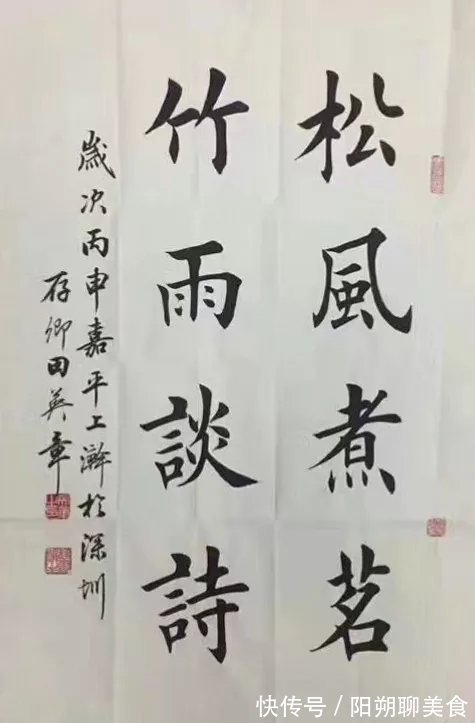 松風煮茗
竹雨談詩
歲次丙申嘉平上澣於深圳
存卿田英章
快传号/阳朔聊美食